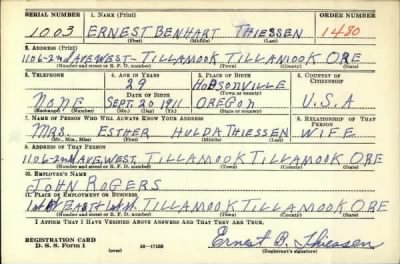 SERIAL NUMBER 1. NAME (Print) ORDER NUMBER
1003 ERNEST BENHART THIESSEN 1480
(First) (Middle) (Last)
2. ADDRESS (Print)
1106-2nd AVE WEST- TILLAMOOK TILLAMOOK ORE
(Number and street or R. F. D. number) (Town) (County) (State)
3. TELEPHONE 4. AGE IN YEARS 5. PLACE OF BIRTH 6. COUNTRY OF CITIZENSHIP
29 HOBSONVILLE
DATE OF BIRTH (Town or county)
NONE SEPT. 20 1911 OREGON U.S.A
(Exchange) (Number) (Mo.) (Day) (Yr.) (State or country)
7. NAME OF PERSON WHO WILL ALWAYS KNOW YOUR ADDRESS 8. RELATIONSHIP OF THAT PERSON
MRS. ESTHER HULDA THIESSEN WIFE
(Mr., Mrs., Miss) (First) (Middle) (Last)
9. ADDRESS OF THAT PERSON
1106-2nd AVE. WEST TILLAMOOK TILLAMOOK ORE
(Number and street or R. F. D. number) (Town) (County) (State)
10. EMPLOYER'S NAME
JOHN ROGERS
11. PLACE OF EMPLOYMENT OR BUSINESS
EAST TILLAMOOK TILLAMOOK ORE
(Number and street or R. F. D. number) (Town) (County) (State)
I AFFIRM THAT I HAVE VERIFIED ABOVE ANSWERS AND THAT THEY ARE TRUE.
REGISTRATION CARD
D. S. S. Form 1 (over) 16-17105 Ernest B. Thiessen
(Registrant's signature)